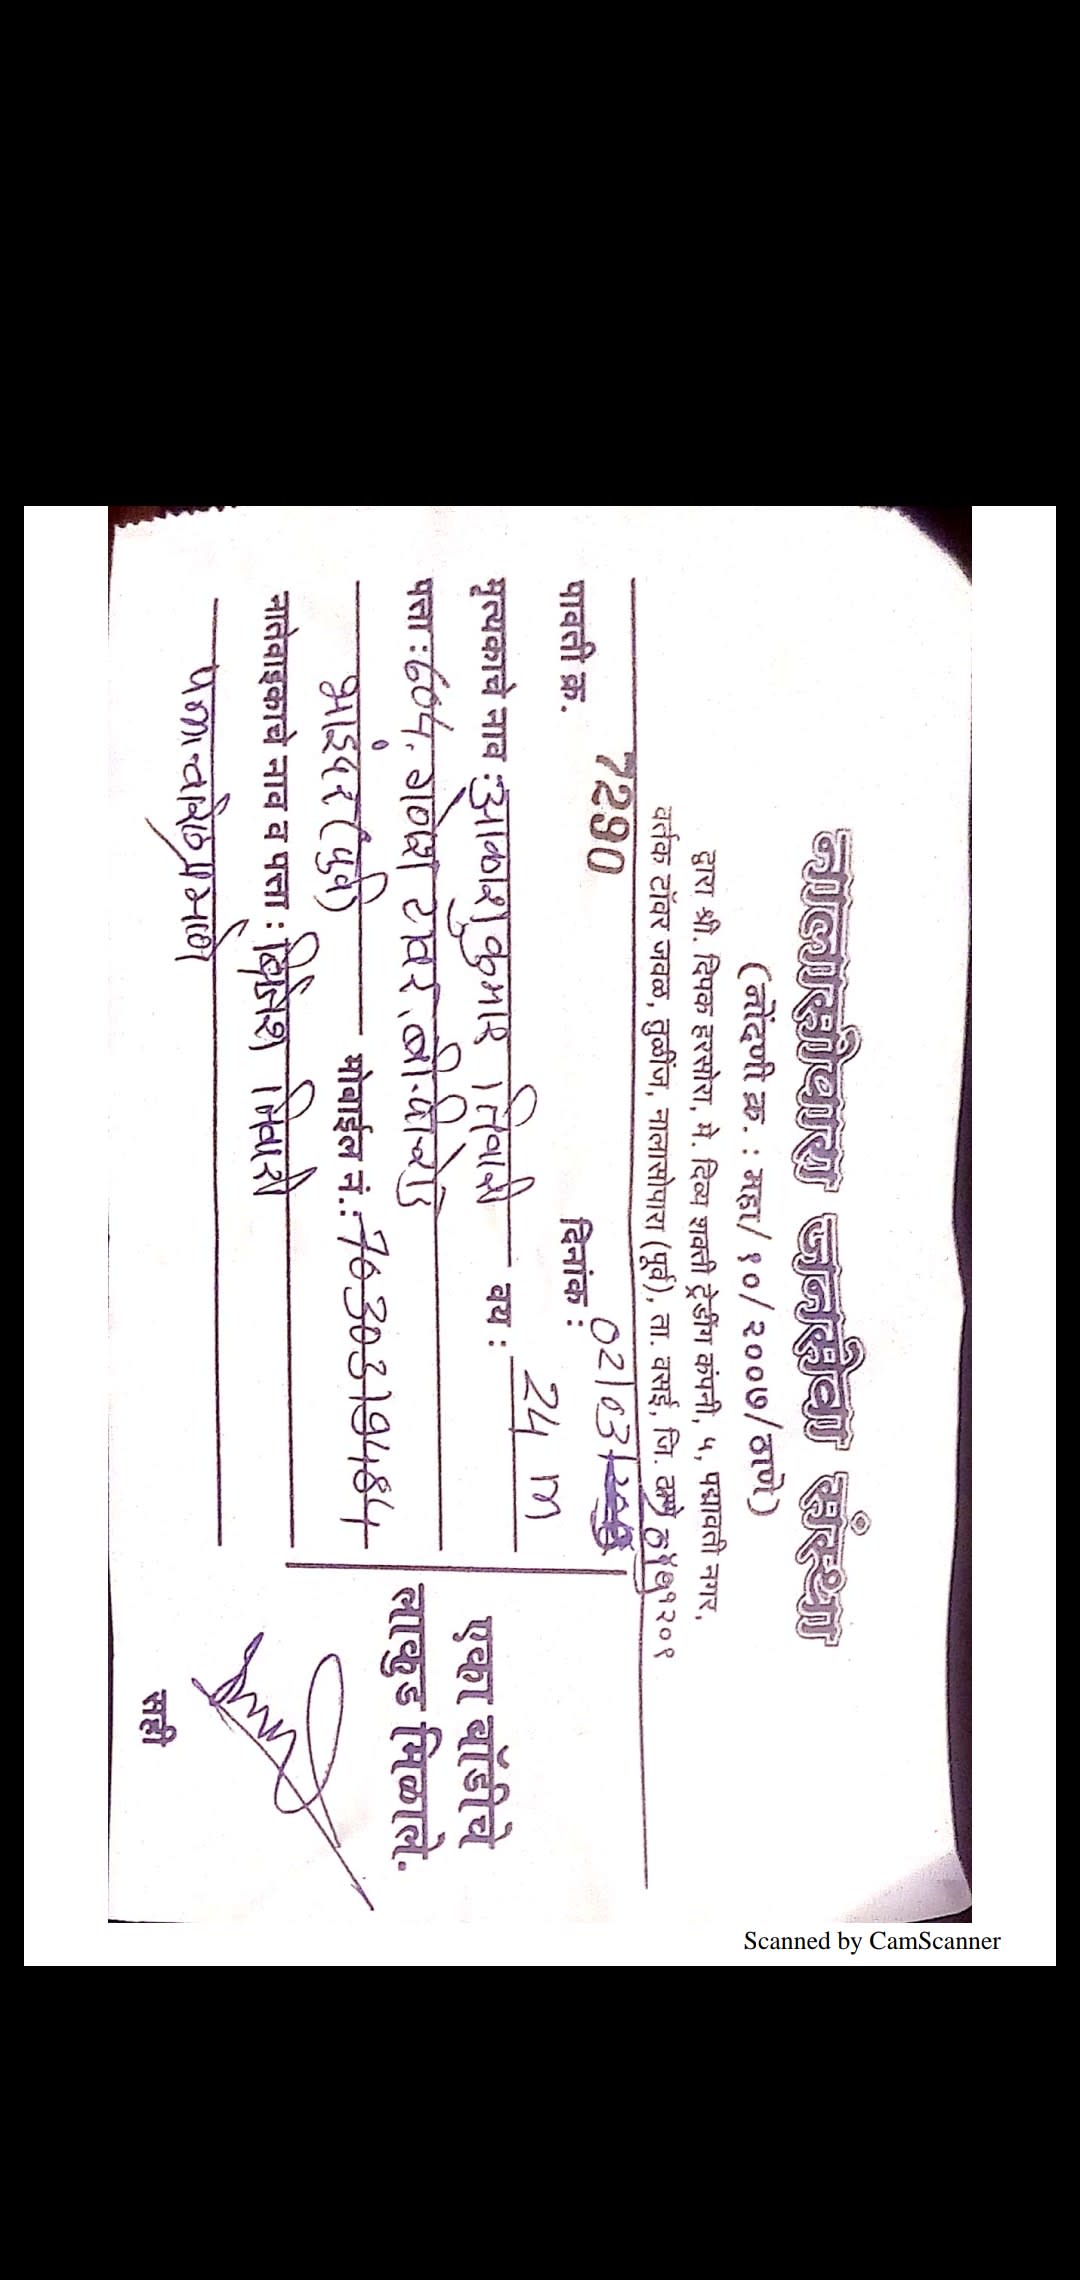 नालासोपारा जनसेवा संस्था
(नोंदणी क्र. : महा/ १०/ २००७/ठाणे)
द्वारा श्री. दिपक हरसोरा, मे. दिव्य शक्ती ट्रेडींग कंपनी, ५, पद्मावती नगर,
वर्तक टॉवर जवळ, तुळींज, नालासोपारा (पूर्व), ता. वसई, जि.
पावती क्र. 7290 दिनांक : 02/03/
मृत्यकाचे नाव : आकाश कुमार तिवारी वय : 24 m
पत्ता : 604, गणेश टावर, बी.पी.रोड
भाईंदर (पुर्व) मोबाईल नं.: 7630319484
नातेवाइकाचे नाव व पत्ता : तिवारी
एका बॉडीचे
लाकुड मिळाले.
सही
Scanned by CamScanner